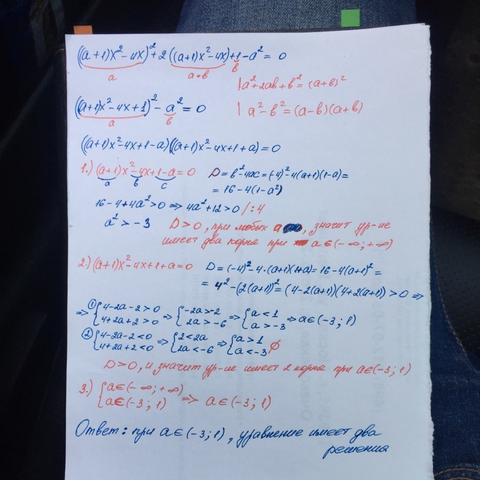 ((a+1)x²-4x)²+2((a+1)x²-4x)+1-a² = 0
a a*b b
| a²+2ab+b² = (a+b)²
((a+1)x²-4x+1)²-a² = 0
a b
| a²-b² = (a-b)(a+b)
((a+1)x²-4x+1-a)((a+1)x²-4x+1+a) = 0
1.) (a+1)x²-4x+1-a=0 D = b²-4ac = (-4)²-4(a+1)(1-a) =
a b c
= 16-4(1-a²)
16-4+4a²>0 => 4a²+12>0 /:4
a² > -3 D>0, при любых a, значит ур-ие
имеет два корня при a∈(-∞;+∞)
2.) (a+1)x²-4x+1+a=0 D=(-4)²-4·(a+1)(1+a)=16-4(a+1)² =
= 4²-(2(a+1))² = (4-2(a+1))(4+2(a+1)) > 0 =>
=> ① {4-2a-2>0 4+2a+2>0 => {-2a>-2 2a>-6 => {a<1 a>-3 => a∈(-3;1)
② {4-2a-2<0 4+2a+2<0 => {2<2a 2a<-6 => {a>1 a<-3 ∅
D>0, и значит ур-ие имеет 2 корня при a∈(-3;1)
3.) {a∈(-∞;+∞) a∈(-3;1) => a∈(-3;1)
Ответ: при a∈(-3;1), уравнение имеет два
решения